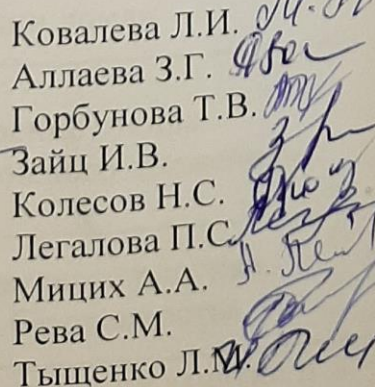 Ковалева Л.И.
Аллаева З.Г.
Горбунова Т.В.
Зайц И.В.
Колесов Н.С.
Легалова П.С.
Мицих А.А.
Рева С.М.
Тыщенко Л.М.